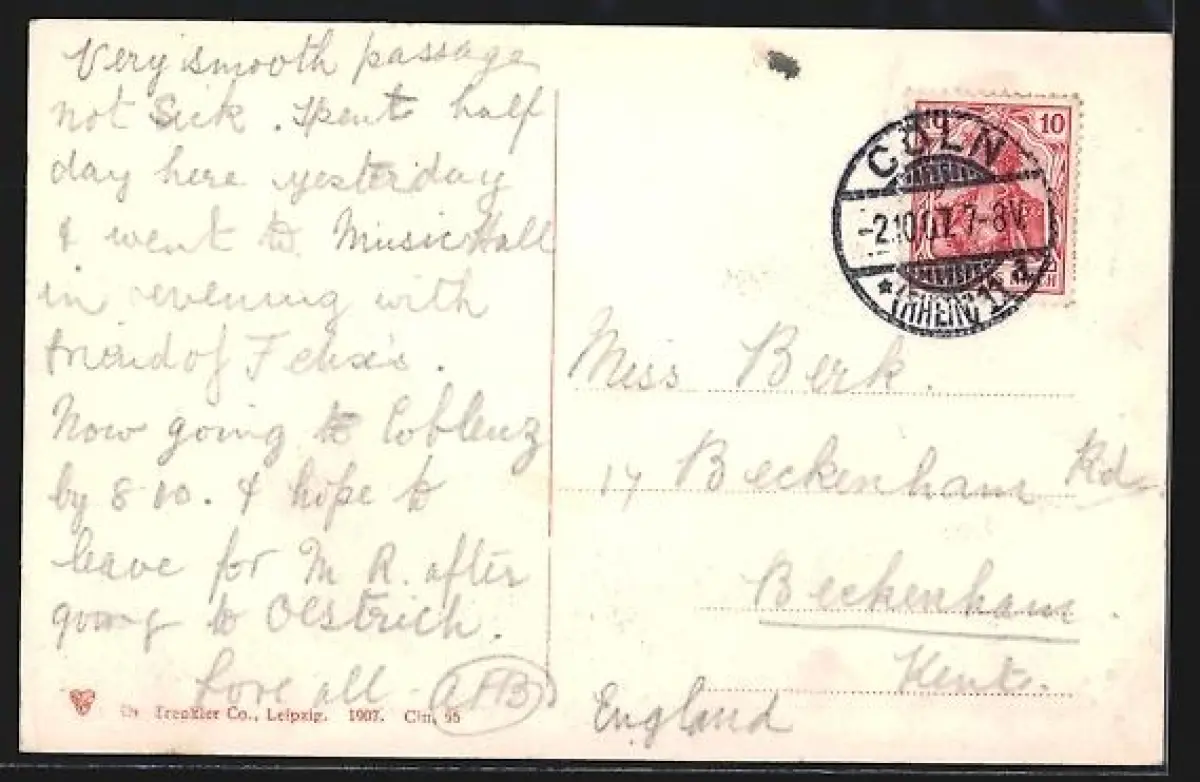 Very smooth passage
not Sick. Spent half
day here yesterday
& went to Music Hall
in evening with
friend of Felix's.
Now going to Coblenz
by 8 10. & hope to
leave for M R. after
going to Oestrich.
Love all -
AHB
Trenkler Co., Leipzig. 1907. Cln. 55
10
CÖLN
-2.10.07. 7-8V
* (RHEIN) 1
Miss Berk.
17 Beckenham Rd.
Beckenham.
Kent.
England